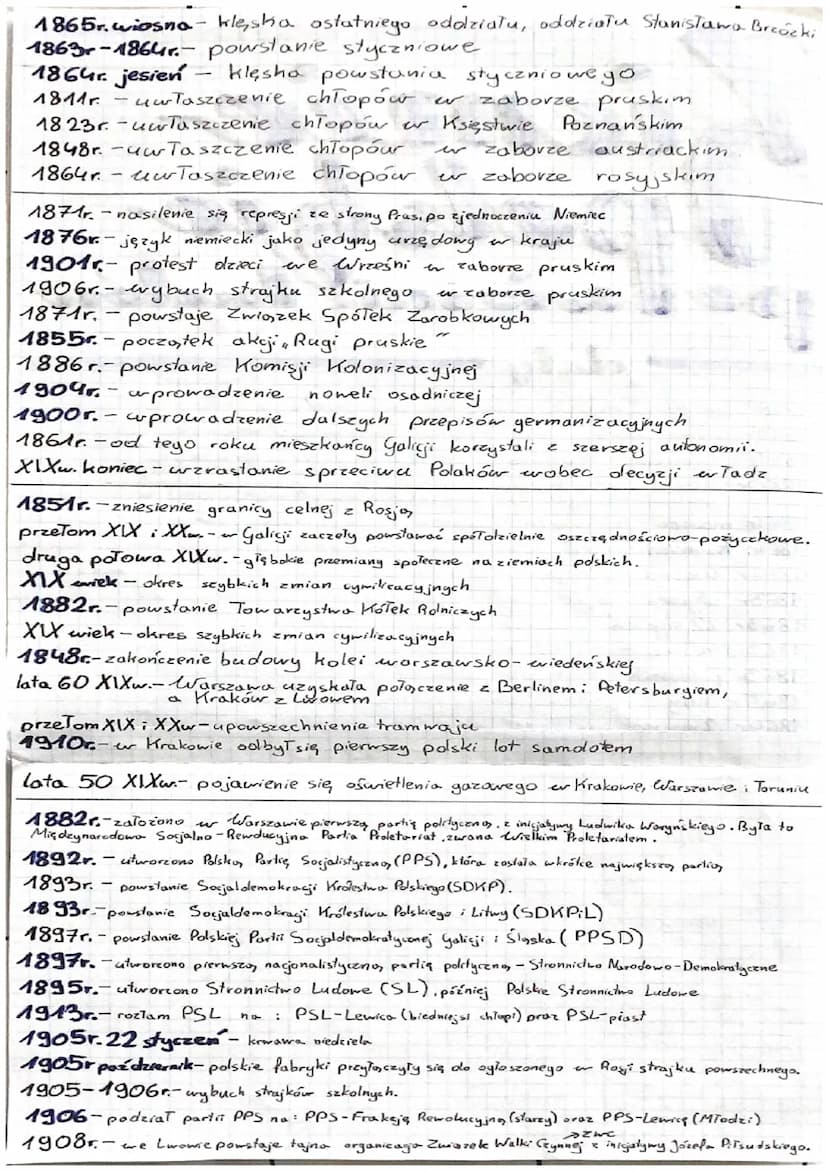 1865r. wiosna - klęska ostatniego oddziału, oddziału Stanisława Brzózki
1863r - 1864r. - powstanie styczniowe
1864r. jesień - klęska powstania styczniowego
1811r. - uwłaszczenie chłopów w zaborze pruskim
1823r. - uwłaszczenie chłopów w Księstwie Poznańskim
1848r. - uwłaszczenie chłopów w zaborze austriackim
1864r. - uwłaszczenie chłopów w zaborze rosyjskim
1871r. - nasilenie się represji ze strony Prus, po zjednoczeniu Niemiec
1876r. - język niemiecki jako jedyny urzędowy w kraju
1901r. - protest dzieci we Wrześni w zaborze pruskim
1906r. - wybuch strajku szkolnego w zaborze pruskim
1871r. - powstaje Związek Spółek Zarobkowych
1855r. - początek akcji „Rugi pruskie"
1886r. - powstanie Komisji Kolonizacyjnej
1904r. - wprowadzenie noweli osadniczej
1900r. - wprowadzenie dalszych przepisów germanizacyjnych
1861r. - od tego roku mieszkańcy Galicji korzystali z szerszej autonomii.
XIXw. koniec - wzrastanie sprzeciwu Polaków wobec decyzji władz
1851r. - zniesienie granicy celnej z Rosją
przełom XIX i XXw. - w Galicji zaczęły powstawać spółdzielnie oszczędnościowo-pożyczkowe.
druga połowa XIXw. - głębokie przemiany społeczne na ziemiach polskich.
XIX wiek - okres szybkich zmian cywilizacyjnych
1882r. - powstanie Towarzystwa Kółek Rolniczych
XIX wiek - okres szybkich zmian cywilizacyjnych
1848r. - zakończenie budowy kolei warszawsko-wiedeńskiej
lata 60 XIXw. - Warszawa uzyskała połączenie z Berlinem i Petersburgiem,
a Kraków z Lwowem
przełom XIX i XXw - upowszechnienia tramwaju
1910r. - w Krakowie odbył się pierwszy polski lot samolotem
lata 50 XIXw. - pojawienie się oświetlenia gazowego w Krakowie, Warszawie i Toruniu
1882r. - założono w Warszawie pierwszą partię polityczną, z inicjatywy Ludwika Waryńskiego. Była to
Międzynarodowa Socjalno-Rewolucyjna Partia Proletariat, zwana Wielkim Proletariatem.
1892r. - utworzono Polską Partię Socjalistyczną (PPS), która została wkrótce największą partią
1893r. - powstanie Socjaldemokracji Królestwa Polskiego (SDKP).
1893r. - powstanie Socjaldemokracji Królestwa Polskiego i Litwy (SDKPiL)
1897r. - powstanie Polskiej Partii Socjaldemokratycznej Galicji i Śląska (PPSD)
1897r. - utworzono pierwszą nacjonalistyczną partię polityczną - Stronnictwo Narodowo-Demokratyczne
1895r. - utworzono Stronnictwo Ludowe (SL), później Polskie Stronnictwo Ludowe
1913r. - rozłam PSL na : PSL-Lewica (biedniejsi chłopi) oraz PSL-piast
1905r. 22 styczeń - krwawa niedziela
1905r październik - polskie fabryki przyłączyły się do ogłoszonego w Rosji strajku powszechnego.
1905 - 1906r. - wybuch strajków szkolnych.
1906 - podział partii PPS na: PPS-Frakcję Rewolucyjną (starzy) oraz PPS-Lewicę (Młodzi)
1908r. - we Lwowie powstaje tajna organizacja Związek Walki Czynnej z inicjatywy Józefa Piłsudskiego.
→ZWC